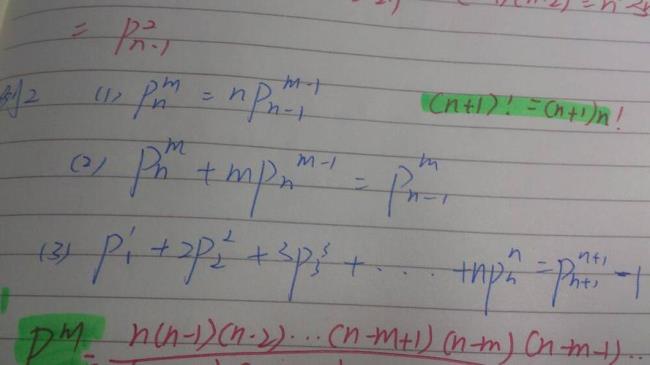 (n-2) = n
= P²ₙ₋₁
例2 (1) Pₙᵐ = nPₙ₋₁ᵐ⁻¹ (n+1)! = (n+1)n!
(2) Pₙᵐ + mPₙᵐ⁻¹ = Pₙ₋₁ᵐ
(3) P₁¹ + 2P₂² + 3P₃³ + ···· + nPₙⁿ = Pₙ₊₁ⁿ⁺¹ - 1
Pᵐ = n(n-1)(n-2)···(n-m+1)(n-m)(n-m-1)··